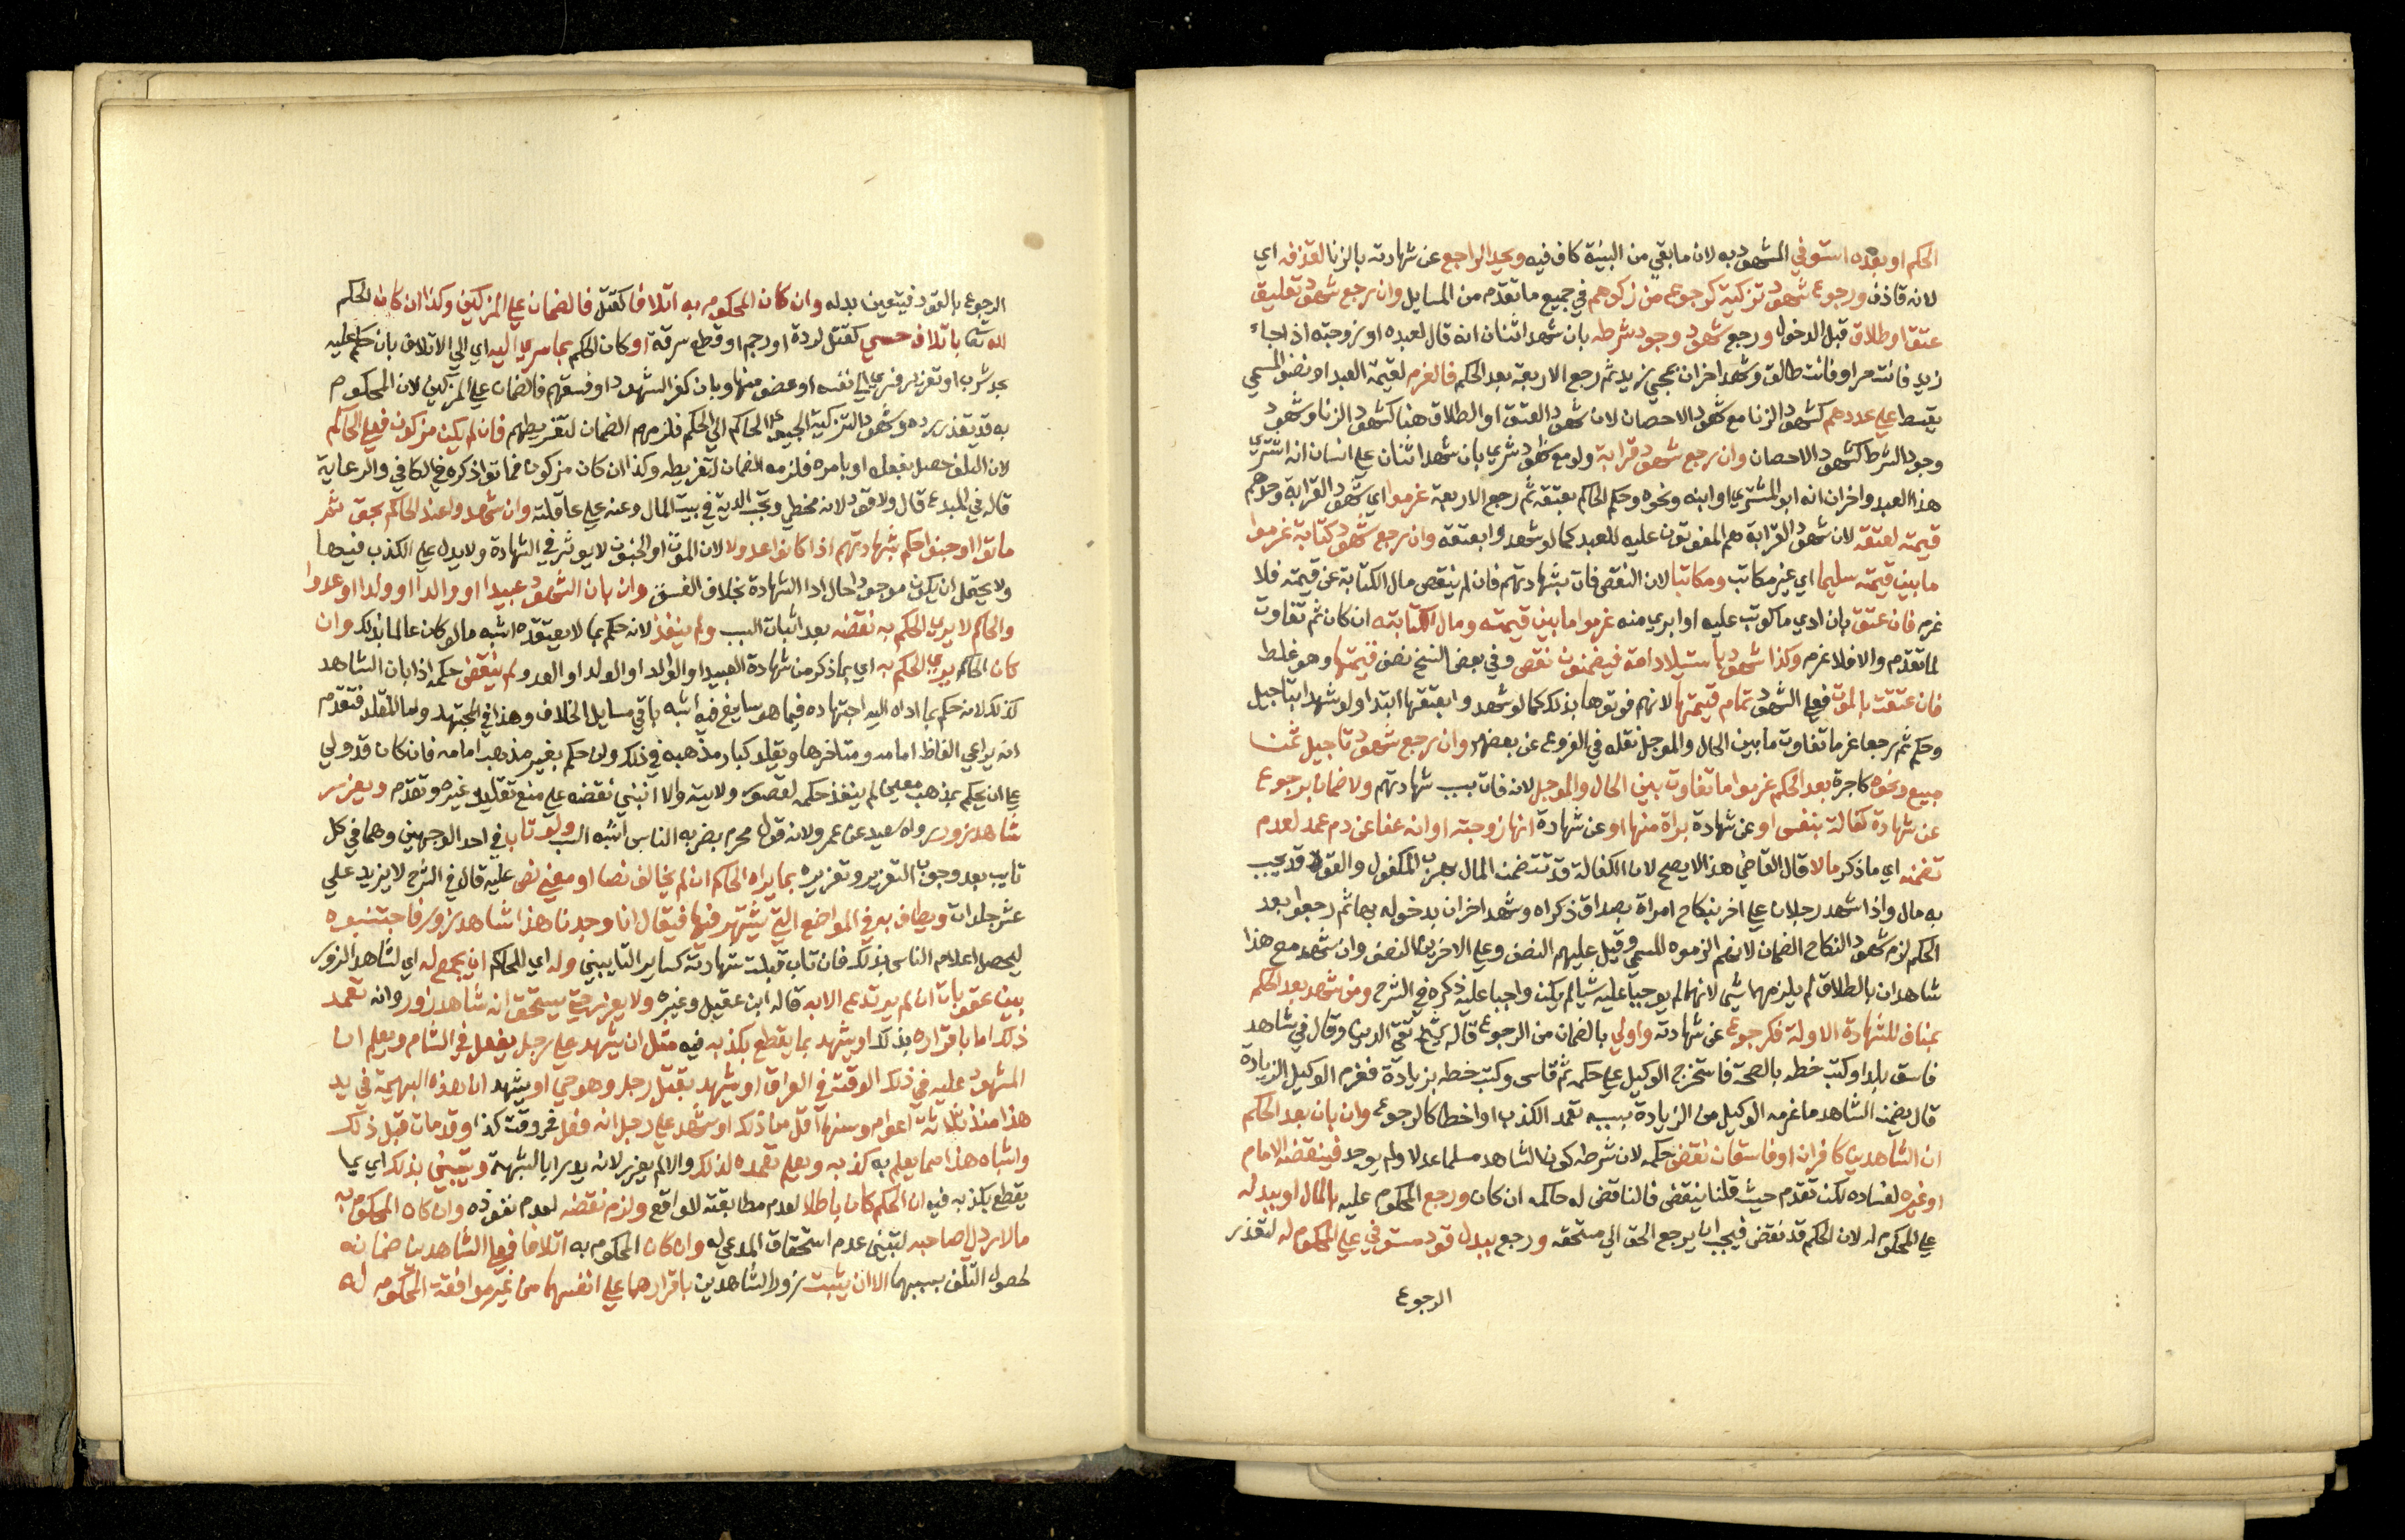 الحكم او بعده استوفي المشهود به لان ما بقي من البينة كاف فيه ويحد الراجع عن شهادته بالزنا لقذفه اي
لانه قاذف ورجوع شهود تزكية كرجوع من زكوهم في جميع ما تقدم من المسايل وان رجع شهود تعليق
عتق او طلاق قبل الدخول ورجع شهود وجود شرطه بان شهد اثنان انه قال لعبده او زوجته اذا جاء
زيد فانت حر او فانت طالق وشهد اخران بمجي زيد ثم رجع الاربعة بعد الحكم فالغرم لقيمة العبد او نصف المسمي
يقسط علي عددهم كشهود الزنا مع شهود الاحصان لان شهود العتق او الطلاق هنا كشهود الزنا وشهود
وجود الشرط كشهود الاحصان وان رجع شهود قرابة ولو مع شهود شري بان شهد اثنان علي انسان انه اشتري
هذا العبد واخران انه ابو المشتري او ابنه ونحوه وحكم الحاكم بعتقه ثم رجع الاربعة غرموا اي شهود القرابة وحدهم
قيمته لعتقه لان شهود القرابة هم المفوتون عليه للعبد كما لو شهدوا بعتقه وان رجع شهود كتابة غرموا
ما بين قيمته سليما اي غير مكاتب ومكاتبا لان النقص فات بشهادتهم فان لم ينقص مال الكتابة عن قيمته فلا
غرم فان عتق بان ادي ما كوتب عليه او ابري منه غرموا ما بين قيمته ومال الكتابته ان كان ثم تفاوت
لما تقدم والا فلا غرم وكذا شهود باستيلاد امة فيضمنون نقص وفي بعض النسخ نصف قيمتها وهو غلط
فان عتقت بالموت فعلي الشهود تمام قيمتها لانهم فوتوها بذلك كما لو شهدوا بعتقها ابتدا ولو شهدا بتاجيل
وحكم ثم رجعا غرما تفاوت ما بين الحال والموجل نقله في الفروع عن بعضهم وان رجع شهود تاجيل ثمن
مبيع ونحوه كاجرة بعد الحكم غرموا ما تفاوت بين الحال والموجل لانه فات بسبب شهادتهم ولا ضمان برجوع
عن شهادة كفالة بنفس او عن شهادة براة منها او عن شهادة انها زوجته او انه عفا عن دم عمد لعدم
تضمنه اي ما ذكر مالا قال القاضي هذا لا يصح لان الكفالة قد تتضمن المال بهرب المكفول والقود قد يجب
به مال واذا شهد رجلان علي اخر بنكاح امراة بصداق ذكراه وشهد اخران بدخوله بها ثم رجعوا بعد
الحكم لزم شهود النكاح الضمان لانهم الزموه للمسمي وقيل عليهم النصف وعلي الاخرين النصف وان شهد مع هذا
شاهدان بالطلاق لم يلزمهما شي لانهما لم يوجبا عليه شيا لم يكن واجبا عليه ذكره في الشرح ومن شهد بعد الحكم
بمناف للشهادة الاولة فكرجوع عن شهادته واولي بالضمان من الرجوع قاله الشيخ تقي الدين وقال في شاهد
قاسق بلدا وكتب خطه بالصحة فاستخرج الوكيل علي حكمه ثم قاس وكتب خطه بزيادة فغرم الوكيل الزيادة
قال يضمن الشاهد ما غرمه الوكيل من الزيادة بسببه تعمد الكذب او اخطا كالرجوع وان بان بعد الحكم
ان الشاهدين كافران او فاسقان نقض حكمه لان شرطه كون الشاهد مسلما عدلا ولم يوجد فينقضه الامام
او غيره لفساده لكن تقدم حيث قلنا ينقض فالناقض له حاكمه ان كان ورجع المحكوم عليه بالمال او ببدله
علي المحكوم له لان الحكم قد نقض فيجب ان يرجع الحق الي مستحقه ورجع ببدل قود مستوفي علي المحكوم له لتعذر
الرجوع
الرجوع بالقود فيتعين بدله وان كان المحكوم به اتلافا كقتل فالضمان علي المزكين وكذا ان كان الحكم
لله تعا باتلاف حسي كقتل لردة او رجم او قطع سرقة او كان الحكم بما سري اليه اي الي الاتلاف بان حكم عليه
بحد شرب او تعزير فسري الي نفسه او عضو منها وبان كفر الشهود او فسقهم فالضمان علي المزكين لان المحكوم
به قد تعذر رده وشهود التزكية الجيوا الحاكم الي الحكم فلزمهم الضمان لتفريطهم فان لم يكن مزكون فعلي الحاكم
لان التلف حصل بفعله او بامره فلزمه الضمان لتفريطه وكذا ان كان مزكون فماتوا ذكره في الكافي والرعاية
قاله في المبدع قال ولا قود لانه مخطي وتجب الدية في بيت المال وعنه علي عاقلته وان شهدوا عند الحاكم بحق ثم
ماتوا او جنوا حكم بشهادتهم اذا كانوا عدولا لان الموت او الجنون لا يوثر في الشهادة ولا يدل علي الكذب فيها
ولا يحتمل ان يكون موجودا حال ادا الشهادة بخلاف الفسق وان بان الشهود عبيدا او والدا او ولدا او عدوا
والحاكم لا يري الحكم به نقضه بعد اثبات السبب ولم ينفذ لانه حكم بما لا يعتقده اشبه ما لو كان عالما بذلك وان
كان الحاكم يري الحكم به اي بما ذكر من شهادة العبيد او الوالد او الولد او العدو لم ينقض حكمه اذا بان الشاهد
كذلك لانه حكم بما اداه اليه اجتهاده فيما هو سايغ فيه اشبه باقي مسايل الخلاف وهذا في المجتهد واما المقلد فتقدم
انه يراعي الفاظ امامه ومتاخرها ويقلد كبار مذهبه في ذلك وان حكم بغير مذهب امامه فان كان قد ولي
علي ان يحكم بمذهب معين لم ينفذ حكمه لقصور ولايته والا انبني نقضه علي منع تقليد غيره وتقدم ويعزر
شاهد زور رواه سعيد عن عمر ولانه قول محرم يضر به الناس اشبه السب ولو تاب في احد الوجهين وهما في كل
تايب بعد وجوب التعزير وتعزيره بما يراه الحاكم ان لم يخالف نصا او معني نص عليه قال في الشرح لا يزيد علي
عشر جلدات ويطاف به في المواضع التي يشتهر فيها فيقال انا وجدنا هذا شاهد زور فاجتنبوه
ليحصل اعلام الناس بذلك فان تاب قبلت شهادته كساير التايبين وله اي للحاكم ان يجمع له اي لشاهد الزور
بين عقوبات ان لم يرتدع الا به قاله ابن عقيل وغيره ولا يعزر حتي يتحقق انه شاهد زور وانه تعمد
ذلك اما باقراره بذلك او يشهد بما يقطع بكذبه فيه مثل ان يشهد علي رجل بفعل في الشام ويعلم ان
المشهود عليه في ذلك الوقت في العراق او يشهد بقتل رجل وهو حي او يشهد ان هذه البهيمة في يد
هذا منذ ثلاثة اعوام وسنها اقل من ذلك او شهد علي رجل انه فعل في وقت كذا وقد مات قبل ذلك
واشباه هذا مما يعلم به كذبه ويعلم تعمده لذلك والا لم يعزر لانه يدرا بالشبهة وتبيني بذلك اي بما
يقطع بكذبه فيه ان الحكم كان باطلا لعدم مطابقته للواقع ولزم نقضه لعدم نفوذه وان كان المحكوم به
مالا رد لي صاحبه لتبيني عدم استحقاق المدعي له وان كان المحكوم به اتلافا فعلي الشاهدين ضمانه
لحصول التلف بسببهما الا ان يثبت زور الشاهدين باقرارهما علي انفسهما من غير موافقة المحكوم له